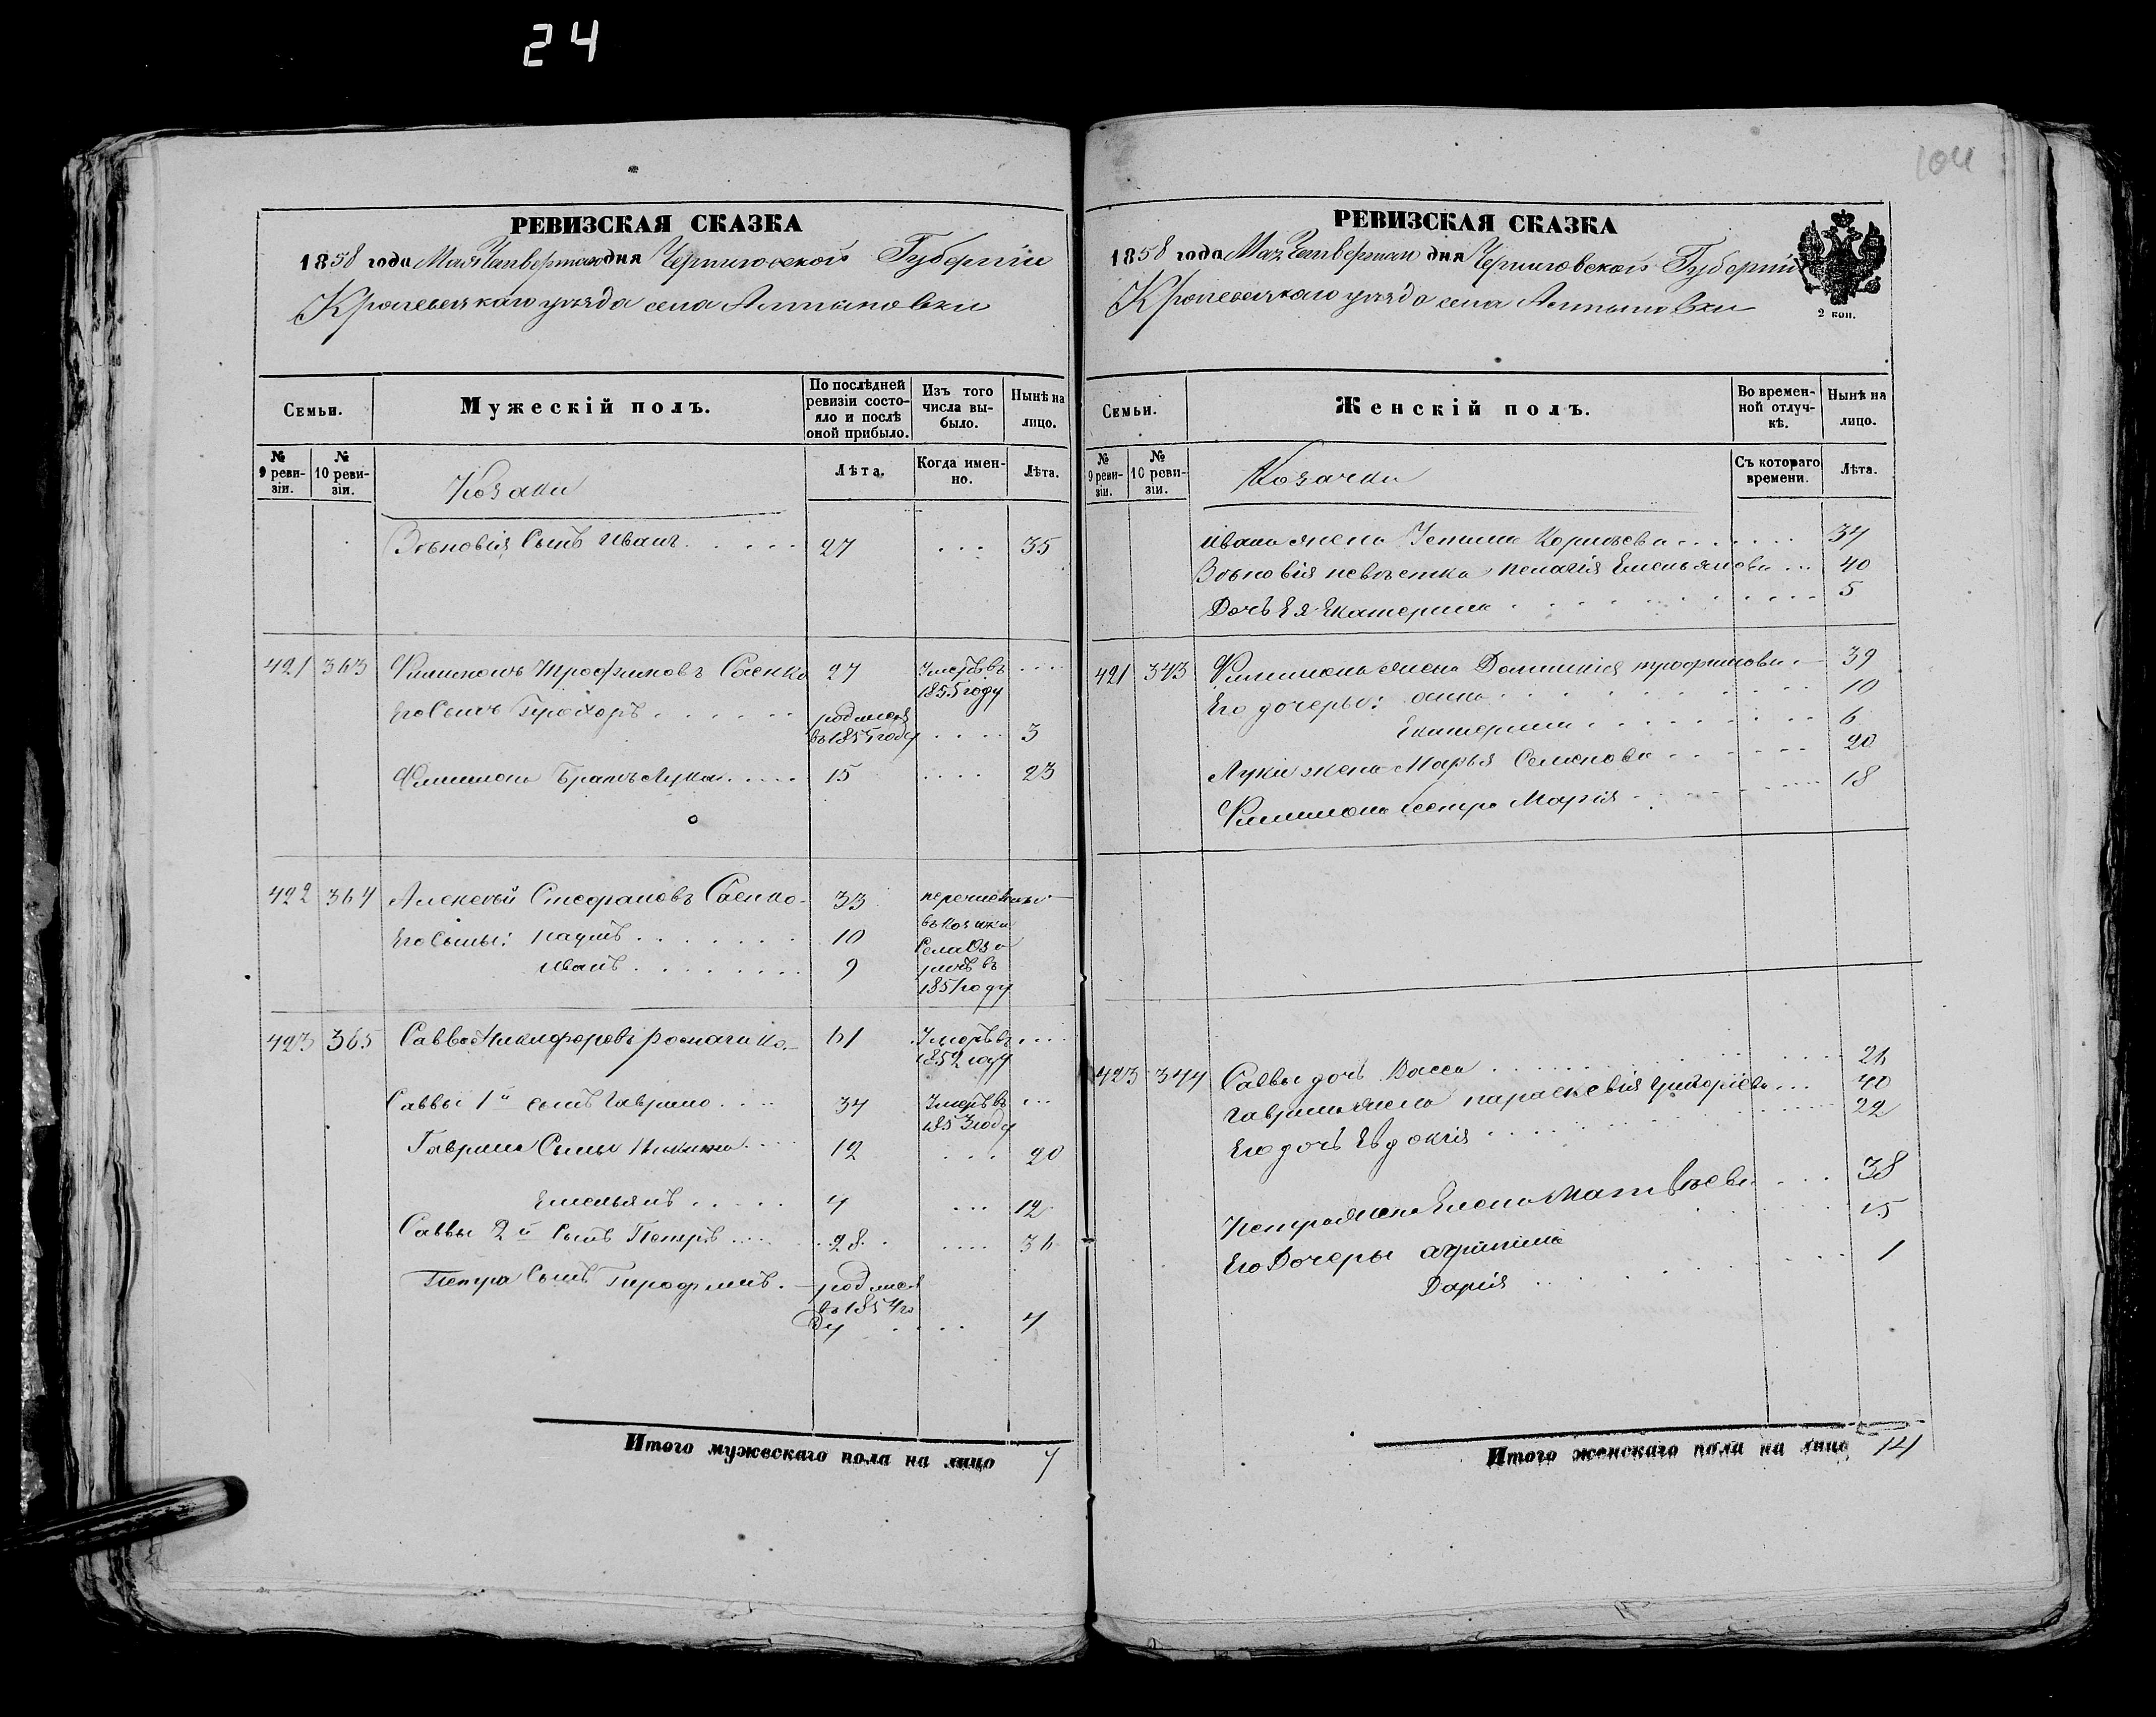 24
104
РЕВИЗСКАЯ СКАЗКА
1858 года Мая Четвертаго дня Черниговской Губерніи
Кролевецкаго уезда села Алтыновки
Семьи.
Мужескій полъ.
По послѣдней ревизіи состояло и послѣ оной прибыло.
Изъ того числа выбыло.
Нынѣ на лицо.
№ 9 ревизіи.
№ 10 ревизіи.
Козаки
Лѣта.
Когда именно.
Лѣта.
Зѣновія Сынъ Иванъ 27 35
421 363 Филимонъ Трофимовъ Саенко 27 Умеръ въ
1855 году
Его Сынъ Прохоръ родился
въ 1855 году 3
Филимона Братъ Лука 15 23
422 364 Алексѣй Стефановъ Саенко 33 перечислены
въ козаки
Его Сыны: Наумъ 10 Села
Иванъ 9 въ
1851 году
423 365 Савва Никифоровъ 61 Умеръ въ
1852 году
Саввы 1й сынъ Гаврило 34 Умеръ въ
1853 году
Гаврила Сыны Никита 12 20
Емельянъ 4 12
Саввы 2й Сынъ Петръ 28 36
Петра Сынъ Трофимъ родился
въ 1854 го
ду 4
Итого мужескаго пола на лицо 7
РЕВИЗСКАЯ СКАЗКА
1858 года Мая Четвертаго дня Черниговской Губерніи
Кролевецкаго уезда села Алтыновки
2 коп.
Семьи.
Женскій полъ.
Во временной отлучкѣ.
Нынѣ на лицо.
№ 9 ревизіи.
№ 10 ревизіи.
Козачки
Съ котораго времени.
Лѣта.
Ивана жена Устина Корнѣева 34
Зѣновія невѣстка Пелагія Емельянова 40
Дочь Ея Екатерина 5
421 343 Филимона жена Домникія Трофимова 39
Его дочеры: Анна 10
Екатерина 6
Луки жена Марья Семенова 20
Филимона Сестра Марія 18
423 344 Саввы дочь Васса 26
Гаврила жена Параскевія Григоріева 40
Его дочь Евдокія 22
Петра жена Елена Матвѣева 38
Его Дочеры Агрипина 15
Дарія 1
Итого женскаго пола на лицо 14